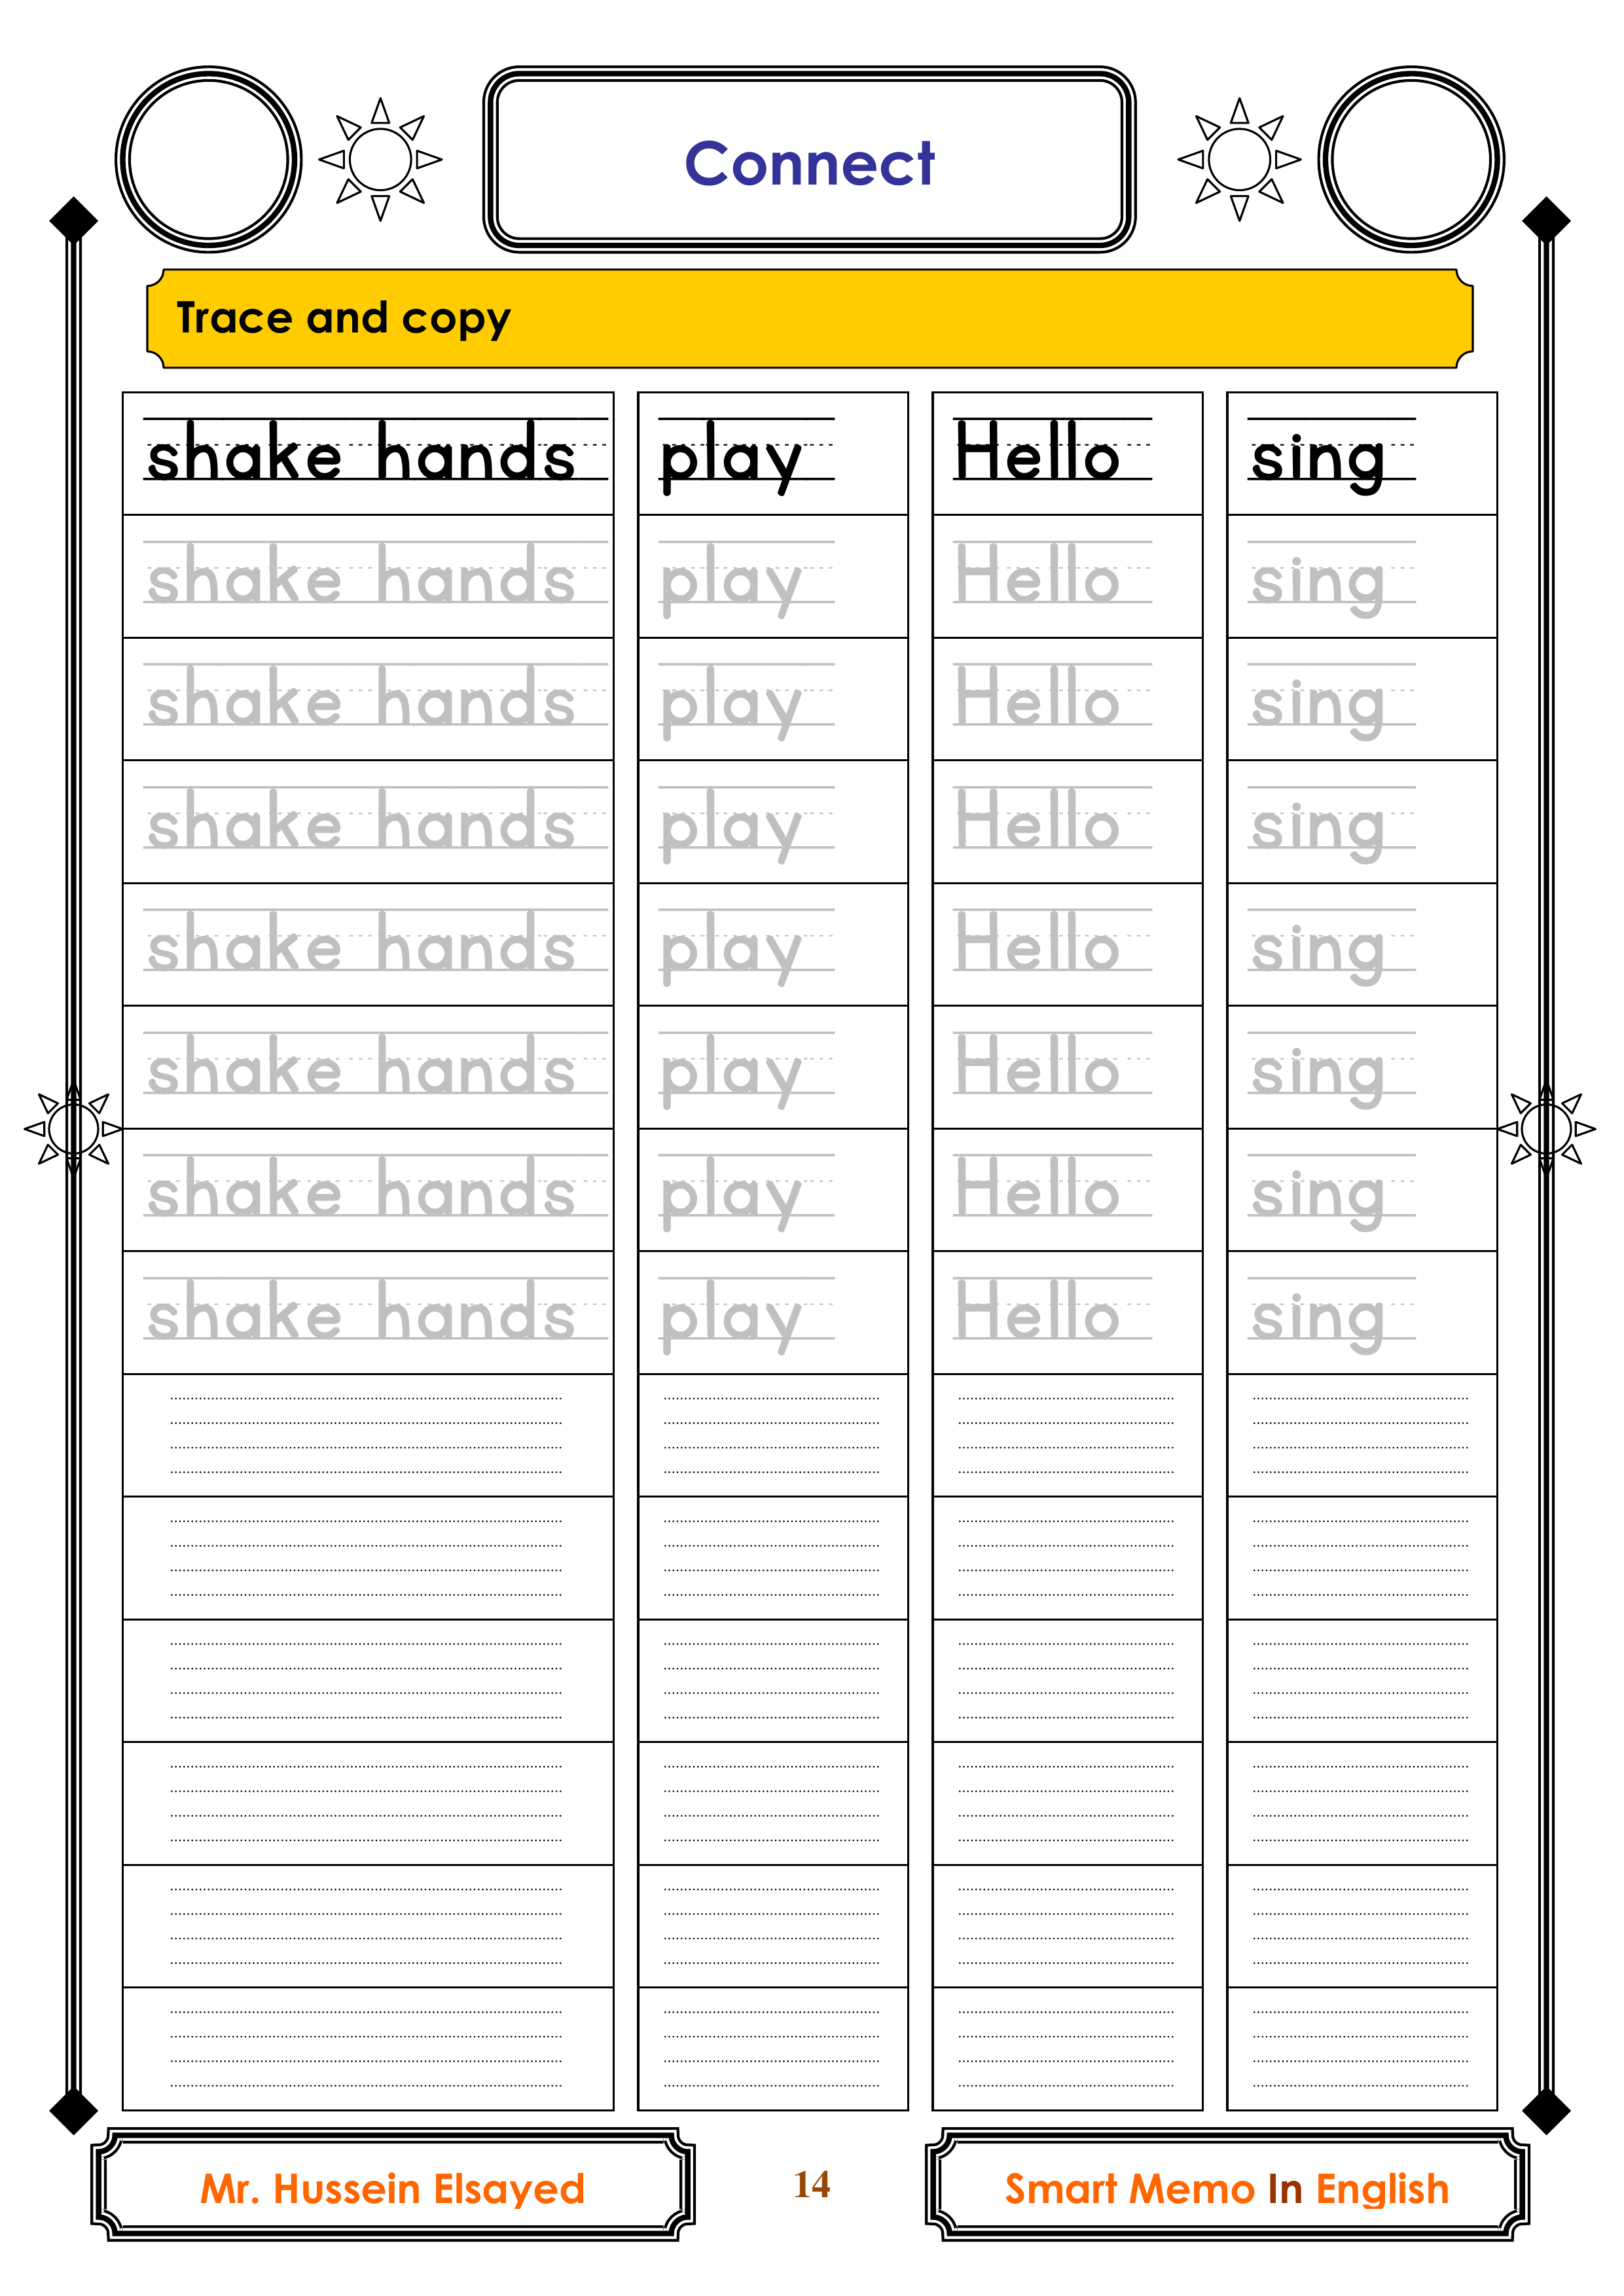 Connect
Trace and copy
shake hands play Hello sing
shake hands play Hello sing
shake hands play Hello sing
shake hands play Hello sing
shake hands play Hello sing
shake hands play Hello sing
shake hands play Hello sing
shake hands play Hello sing
Mr. Hussein Elsayed 14 Smart Memo In English